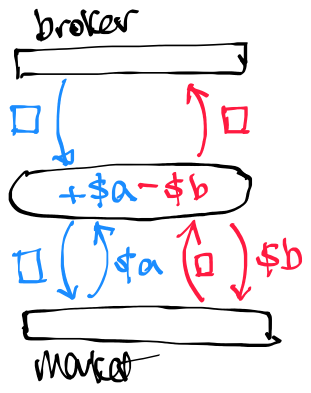 broker
+$a-$b
$a
$b
market